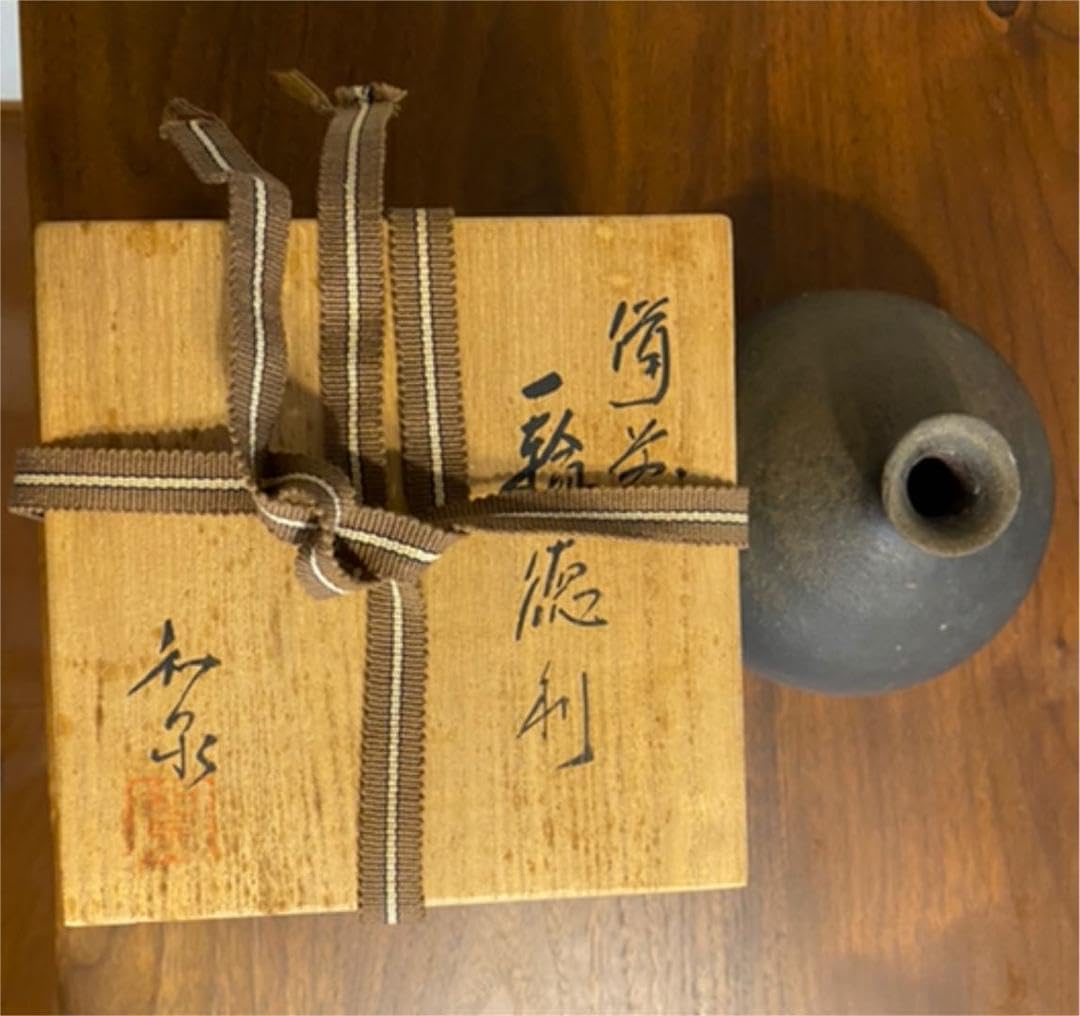 備前
一輪徳利
和泉